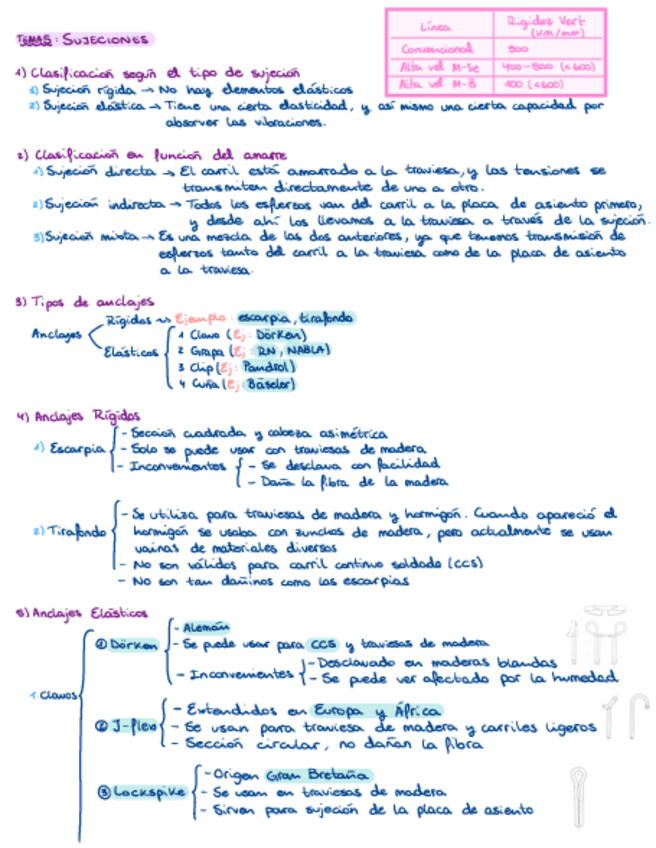 TEMA5: SUJECIONES
Línea
Rigidez Vert (KN/mm)
Convencional
500
Alta vel M-Se
400-500 (<600)
Alta vel M-B
100 (<600)
1) Clasificación según el tipo de sujeción
1) Sujeción rígida → No hay elementos elásticos
2) Sujeción elástica → Tiene una cierta elasticidad, y así mismo una cierta capacidad por
absorver las vibraciones.
2) Clasificación en función del amarre
1) Sujeción directa → El carril está amarrado a la traviesa, y las tensiones se
transmiten directamente de uno a otro.
2) Sujeción indirecta → Todos los esfuerzos van del carril a la placa de asiento primero,
y desde ahí los llevamos a la traviesa a través de la sujeción.
3) Sujeción mixta → Es una mezcla de las dos anteriores, ya que tenemos transmisión de
esfuerzos tanto del carril a la traviesa como de la placa de asiento
a la traviesa.
3) Tipos de anclajes
Anclajes
Rígidos → Ejemplo: escarpia, tirafondo
Elásticos
1 Clavo (Ej: Dörken)
2 Grapa (Ej: RN, NABLA)
3 Clip (Ej: Pandrol)
4 Cuña (Ej: Bäseler)
4) Anclajes Rígidos
1) Escarpia
- Sección cuadrada y cabeza asimétrica
- Solo se puede usar con traviesas de madera
- Inconvenientes
- Se desclava con facilidad
- Daña la fibra de la madera
2) Tirafondo
- Se utiliza para traviesas de madera y hormigón. Cuando apareció el
hormigón se usaba con zunchos de madera, pero actualmente se usan
vainas de materiales diversos
- No son válidos para carril continuo soldado (CCS)
- No son tan dañinos como las escarpias
5) Anclajes Elásticos
1. Clavos
① Dörken
- Alemán
- Se puede usar para CCS y traviesas de madera
- Inconvenientes
- Desclavado en maderas blandas
- Se puede ver afectado por la humedad
② J-flex
- Extendidos en Europa y África
- Se usan para traviesa de madera y carriles ligeros
- Sección circular, no dañan la fibra
③ Lockspike
- Origen Gran Bretaña
- Se usan en traviesas de madera
- Sirven para sujeción de la placa de asiento